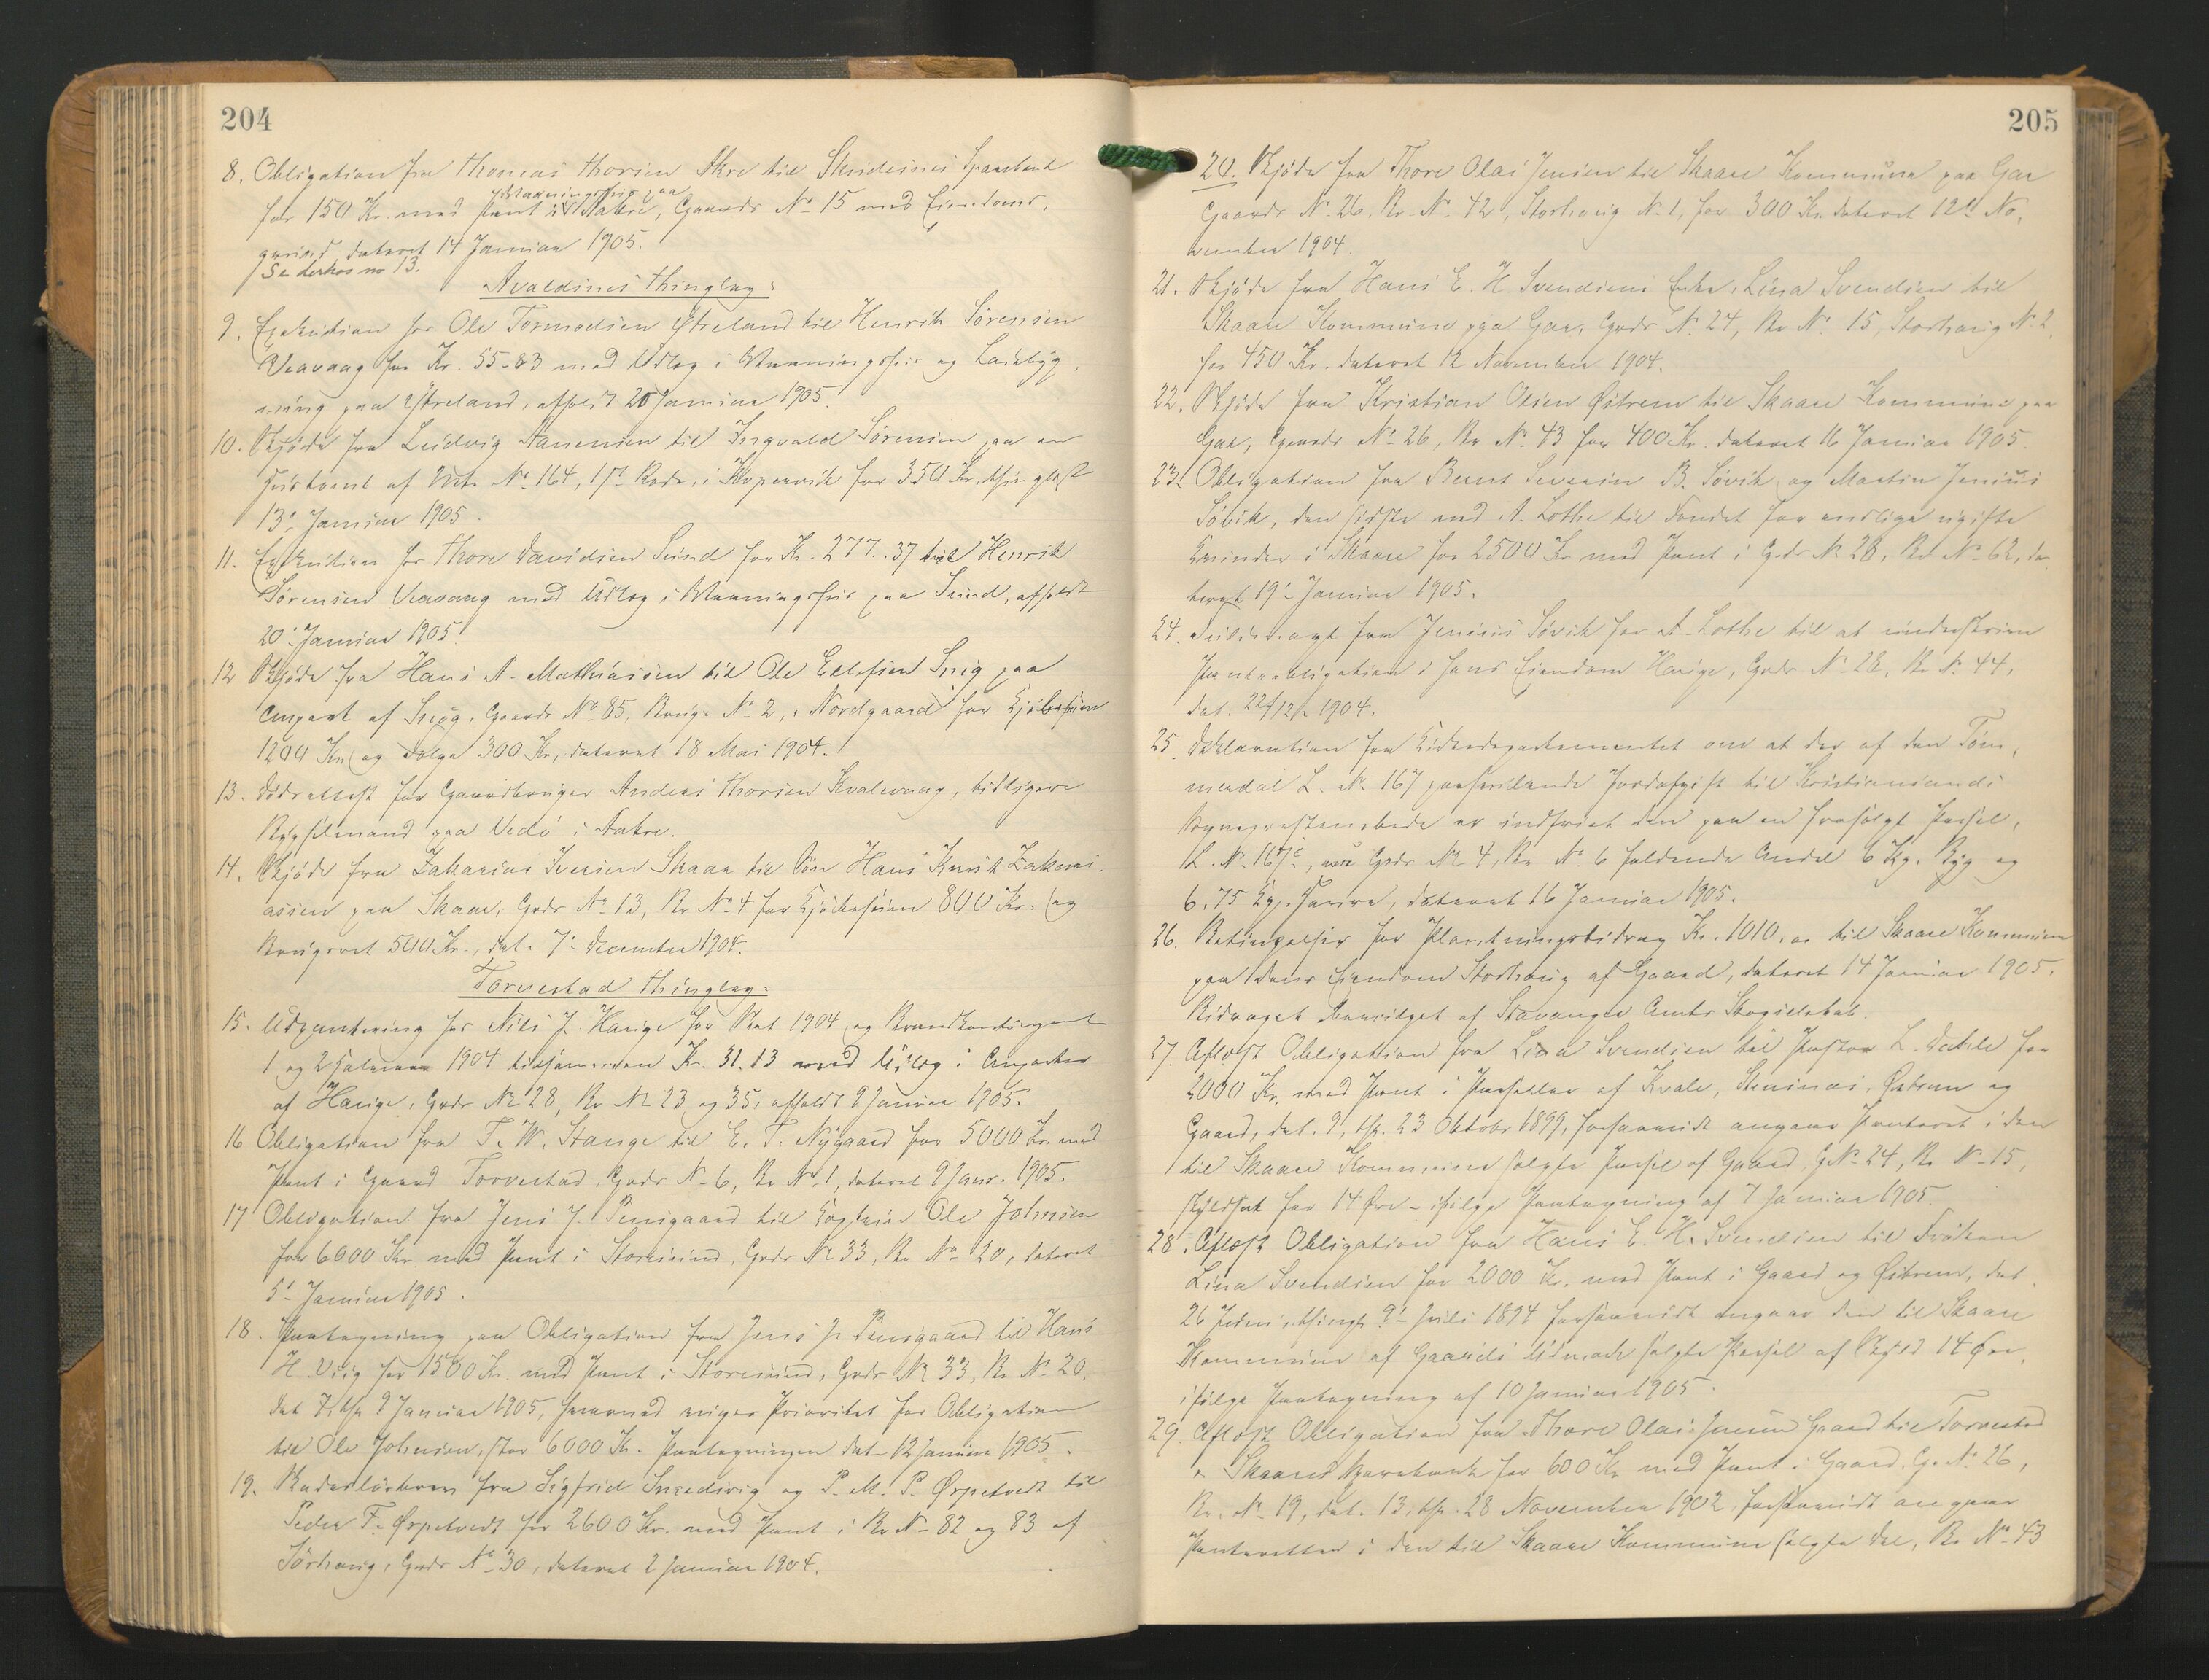 204
8. Obligation fra Thomas Thorsen Akre til Skudesnes Sparebank
Vaaningshus paa
for 150 Kr. med Pant i Aakre, Gaards No 15 med Eiendoms-
dateret 14 Januar 1905.
Se derhos no 13.
Avaldsnes Thinglag:
9. Exekution for Ole Tormodsen Ytreland til Henrik Sørensen
Veavaag for Kr. 55-83 med Udlæg i Vaaningshus og Ladebyg-
ning paa Ytreland, afholdt 20 Januar 1905.
10. Skjøde fra Ludvig Aanensen til Ingvald Sørensen paa en
af Matr. No 164, 1st Rode, i Kopervik for 350 Kr, thinglæst
13de Januar 1905.
11. Exekution for Thore Davidsen Sund for Kr. 277.37 til Henrik
Sørensen Veavaag med Udlæg i Vaaningshus paa Sund, afholdt
20de Januar 1905.
12 Skjøde fra Hans A. Mathiassen til Ole Ellefsen Snig paa
Anpart af Snig, Gaards No 85, Brugs No 2, "Nordgaard" for Kjøbesum
1200 Kr. og Følge 300 Kr, dateret 18 Mai 1904.
13. Dødsattest for Gaardbruger Anders Thorsen Kvalevaag, tidligere
Bygselmand paa Vedø i Aakre.
14. Skjøde fra Zakarias Iversen Skaar til Søn Hans Knut Zakari-
assen paa Skaar, Gards No 13, Br No 4 for Kjøbesum 800 Kr. og
Brugsret 500 Kr., dat. 7de December 1904.
Torvestad Thinglag:
15. Udpantning for Nils J. Hauge for Skat 1904 og Brandkontingent
1 og 2 Halvaar 1904 tilsammen Kr. 31.13 med Udlæg i Anparter
af Hauge, Gards No 28, Br No 23 og 35, afholdt 9 Januar 1905.
16 Obligation fra T. W. Stange til E. T. Nygaard for 5000 Kr. med
Pant i Gaard Torvestad, Gards No 6, Br No 1, dateret 9 Janr. 1905.
17 Obligation fra Jens J. Pensgaard til Kaptein Ole Johnsen
for 6000 Kr. med Pant i Storesund, Gards No 33, Br No 20, dateret
5te Januar 1905.
18. Paategning paa Obligation fra Jens J. Pensgaard til Hans
H. Viig for 1500 Kr. med Pant i Storesund, Gards No 33, Br No 20,
dat 7, thl 9 Januar 1905, hvorved viges Prioritet for Obligation
til Ole Johnsen, stor 6000 Kr. Paategningen dat. 12 Januar 1905.
19. Skadesløsbrev fra Sigfrid Smedsvig og P. M. P. Ørpetvedt til
Peder T. Ørpetvedt for 2600 Kr. med Pant i Br No 82 og 83 af
Sørhaug, Gards No 30, dateret 2 Januar 1904.
205
20. Skjøde fra Thore Olai Jensen til Skaare Kommune paa Gar
Gaards No 26, Br. No 42, Storhaug No 1, for 300 Kr. dateret 12te No-
vember 1904.
21. Skjøde fra Hans E. H. Svendsens Enke, Lina Svendsen til
Skaare Kommune paa Gar, Gards No 24, Br No 15, Storhaug No 2,
for 450 Kr. dateret 12 November 1904.
22. Skjøde fra Kristian Olsen Østrem til Skaare Kommune paa
Gar, Gaards No 26, Br No 43 for 400 Kr. dateret 16 Januar 1905.
23. Obligation fra Bernt Severin B. Søvik og Martin Jenius
Søvik, den sidste ved A. Lothe til Fondet for ugifte
Kvinder i Skaare for 2500 Kr med Pant i Gards No 28, Br No 62, da-
teret 19de Januar 1905.
24. Fuldmagt fra Jenius Søvik for A. Lothe til at underskrive
Pantobligation i hans Eiendom Hauge, Gards No 28, Br No 44,
dat. 22/12 1904.
25. Deklaration fra Kirkedepartementet om at der af den Tøm-
merdal L. No 167 paahvilende Jordafgift til Kristiansands
Sogneprestembede er indfriet den paa en frasolgt Parsel,
L. No 167c, nu Gards No 4, Br No 6 faldende Andel 6 Kg. Byg og
6.75 Kg. Havre, dateret 16 Januar 1905.
26. Betingelser for Plantningsbidrag Kr. 1010.00 til Skaare Kommune
paa dens Eiendom Storhaug af Gaard, dateret 14 Januar 1905.
Bidraget bevilget af Stavanger Amts Skogselskab.
27. Aflæst Obligation fra Lina Svendsen til Pastor L. Dahle for
2000 Kr. med Pant i Parseller af Kvale, Østrem og
Gaard, dat. 9, thl. 23 Oktobr 1899, forsaavidt angaar Panteret i den
til Skaare Kommune solgte Parsel af Gaard, G No 24, Br No 15,
skyldsat for 14 Øre - ifølge Paategning af 7 Januar 1905.
28. Aflæst Obligation fra Hans E. H. Svendsen til Frøken
Lina Svendsen for 2000 Kr. med Pant i Gaard og Østrem, dat.
26 Juni, thingl. 9de Juli 1894 forsaavidt angaar den til Skaare
Kommune af Gaards Udmark solgte Parsel af Skyld 14 Øre,
ifølge Paategning af 10 Januar 1905.
29. Aflæst Obligation fra Thore Olai Jensen Gaard til Torvestad
& Skaares Sparebank for 600 Kr med Pant i Gaard, G. No 26,
Br. No 19, dat. 13, thl. 28 November 1902 forsaavidt angaar
Panteretten i den til Skaare Kommune solgte Del, Br No 43